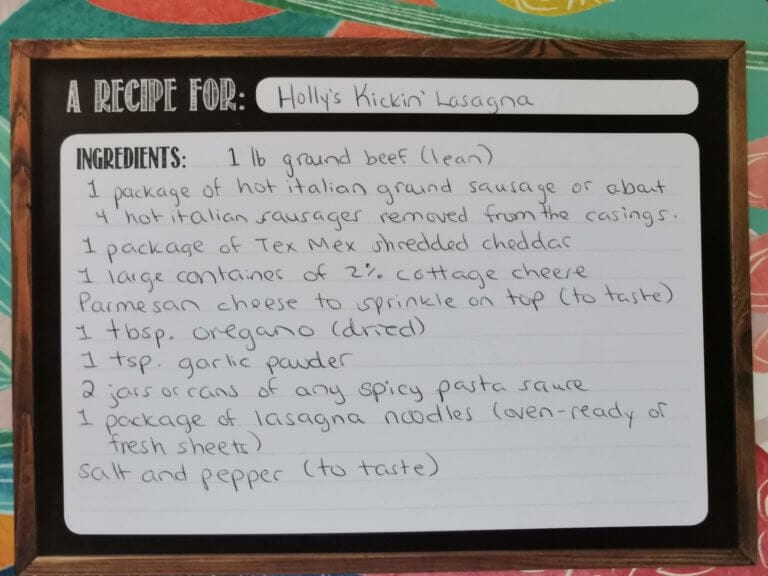 A RECIPE FOR: Holly's Kickin' Lasagna
INGREDIENTS: 1 lb ground beef (lean)
1 package of hot italian ground sausage or about
4 hot italian sausages removed from the casings.
1 package of Tex Mex shredded cheddar
1 large container of 2% cottage cheese
Parmesan cheese to sprinkle on top (to taste)
1 tbsp. oregano (dried)
1 tsp. garlic powder
2 jars or cans of any spicy pasta sauce
1 package of lasagna noodles (oven-ready or
fresh sheets)
salt and pepper (to taste)